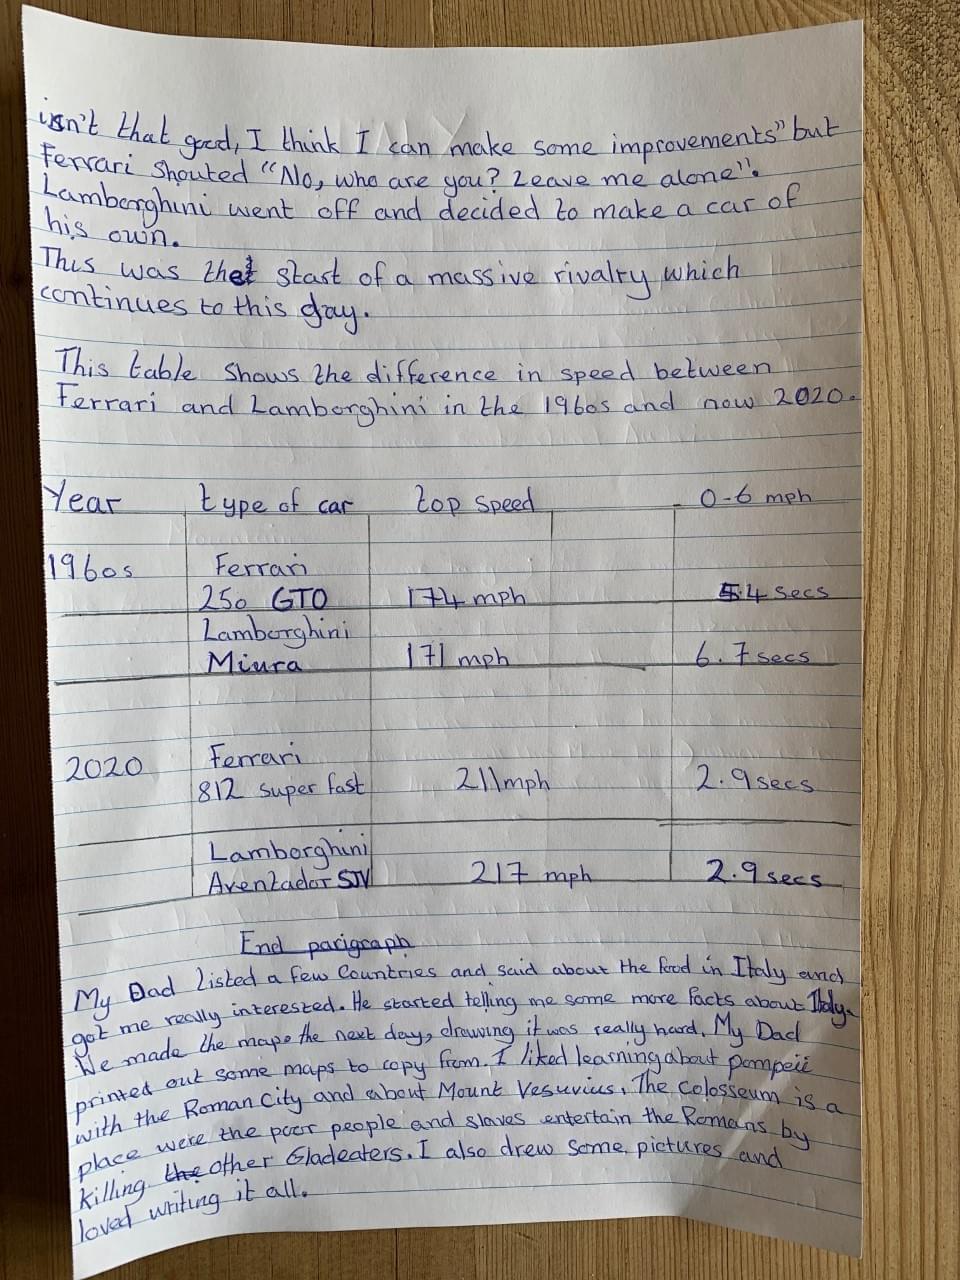 isn't that good, I think I can make some improvements" but
Ferrari shouted "No, who are you? Leave me alone".
Lamborghini went off and decided to make a car of
his own.
This was the start of a massive rivalry which
continues to this day.
This table shows the difference in speed between
Ferrari and Lamborghini in the 1960s and now 2020.
Year type of car top speed 0-6 mph
1960s Ferrari
250 GTO 174 mph 5.4 secs
Lamborghini
Miura 171 mph 6.7 secs
2020 Ferrari
812 super fast 211 mph 2.9 secs
Lamborghini
Aventador SJV 217 mph 2.9 secs
End parigraph
My Dad listed a few Countries and said about the food in Italy and
got me really interested. He started telling me some more facts about Italy.
We made the mape the next day, drawing it was really hard. My Dad
printed out some maps to copy from. I liked learning about pompeii
with the Roman City and about Mount Vesuvius. The Colosseum is a
place were the poor people and slaves entertain the Romans by
killing the other Gladeaters. I also drew some pictures and
loved writing it all.